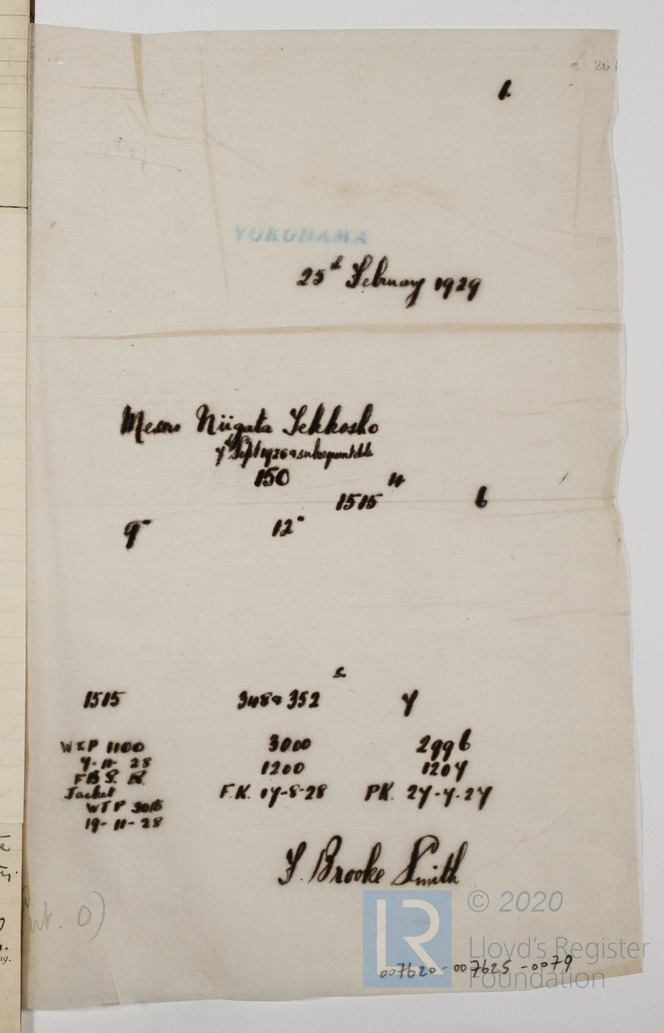 26
1
YOKOHAMA
25th February 1929
Messrs Niigata Tekkosho
7th Sept 1926 & subsequent
150 4
1515 6
9" 12"
1515 348 & 352 7
W T P 1100 3000 2996
7-11-28 1200 1207
F B S.
Jacket F.K. 17-8-28 P.K. 27-7-27
W T P 3015
19-11-28
F. Brooke Smith
0)
© 2020
LR
Lloyd's Register
Foundation
007620-007625-0079